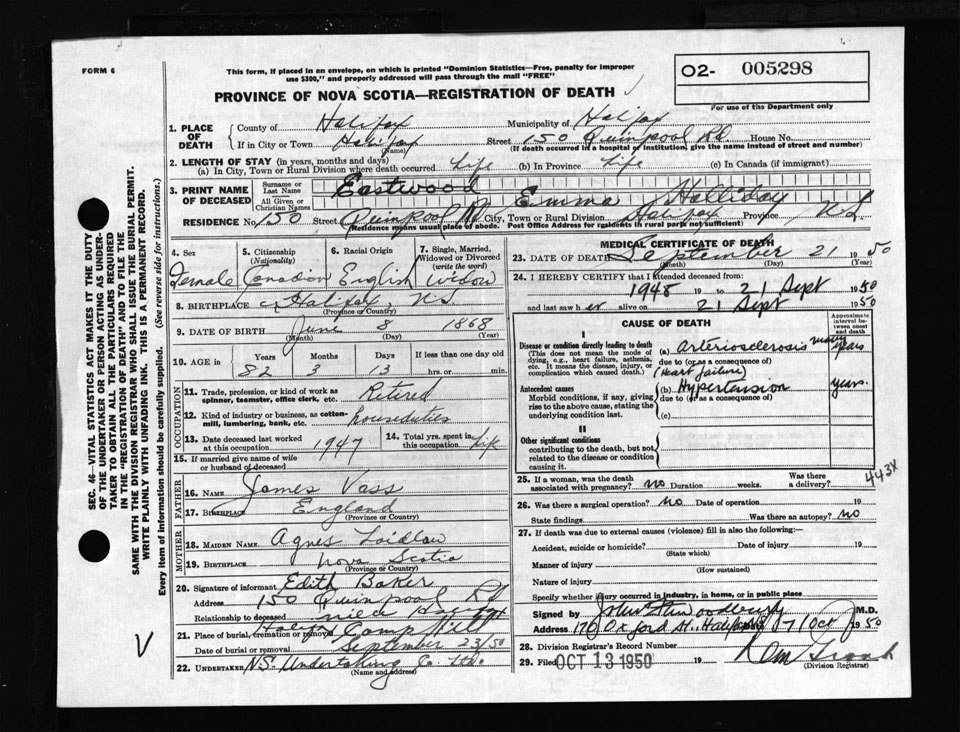 FORM 6
This form, if placed in an envelope, on which is printed "Dominion Statistics—Free, penalty for improper
use $300," and properly addressed will pass through the mail "FREE"
O2- 005298
For use of the Department only
PROVINCE OF NOVA SCOTIA—REGISTRATION OF DEATH
1. PLACE OF DEATH
County of Halifax Municipality of Halifax
If in City or Town Halifax Street 150 Quinpool Rd House No.
(Name) (If death occurred in hospital or institution, give the name instead of street and number)
2. LENGTH OF STAY (in years, months and days)
(a) In City, Town or Rural Division where death occurred Life (b) In Province Life (c) In Canada (if immigrant)
3. PRINT NAME OF DECEASED
Surname or Last Name Eastwood
All Given or Christian Names Emma Halliday
RESIDENCE No. 150 Street Quinpool Rd City, Town or Rural Division Halifax Province N S
(Residence means usual place of abode. Post Office Address for residents in rural parts not sufficient)
4. Sex Female
5. Citizenship (Nationality) Canadian
6. Racial Origin English
7. Single, Married, Widowed or Divorced (write the word) Widow
8. BIRTHPLACE Halifax, NS
(Province or Country)
9. DATE OF BIRTH June 8 1868
(Month) (Day) (Year)
10. AGE in Years Months Days If less than one day old
82 3 13 hrs. or min.
OCCUPATION
11. Trade, profession, or kind of work as spinner, teamster, office clerk, etc. Retired
12. Kind of industry or business, as cotton-mill, lumbering, bank, etc. houseduties
13. Date deceased last worked at this occupation 1947
14. Total yrs. spent in this occupation Life
15. If married give name of wife or husband of deceased
FATHER
16. NAME James Vass
17. BIRTHPLACE England
(Province or Country)
MOTHER
18. MAIDEN NAME Agnes Laidlaw
19. BIRTHPLACE Nova Scotia
(Province or Country)
20. Signature of informant Edith Baker
Address 150 Quinpool Rd
Relationship to deceased
21. Place of burial, cremation or removal Halifax Camp Hill
Date of burial or removal September 23/50
22. UNDERTAKER N.S. Undertaking Co. Ltd.
(Name and address)
MEDICAL CERTIFICATE OF DEATH
23. DATE OF DEATH September 21 1950
(Month) (Day) (Year)
24. I HEREBY CERTIFY that I attended deceased from:
1948 19 to 21 Sept 1950
and last saw her alive on 21 Sept 1950
CAUSE OF DEATH
Approximate interval between onset and death
I
Disease or condition directly leading to death
(This does not mean the mode of dying, e.g., heart failure, asthenia, etc. It means the disease, injury, or complication which caused death.)
(a) Arteriosclerosis many years
due to (or as a consequence of)
(Heart failure)
Antecedent causes
Morbid conditions, if any, giving rise to the above cause, stating the underlying condition last.
(b) Hypertension years.
due to (or as a consequence of)
(c)
II
Other significant conditions
contributing to the death, but not related to the disease or condition causing it.
25. If a woman, was the death associated with pregnancy? no Duration weeks. Was there a delivery?
443X
26. Was there a surgical operation? no Date of operation 19
State findings Was there an autopsy? no
27. If death was due to external causes (violence) fill in also the following:—
Accident, suicide or homicide? Date of injury 19
(State which)
Manner of injury
(How sustained)
Nature of injury
Specify whether injury occurred in industry, in home, or in public place
Signed by M.D.
Address 170 Oxford St., Halifax 7 Oct 1950
28. Division Registrar's Record Number
29. Filed OCT 13 1950 19
(Division Registrar)
SEC. 46—VITAL STATISTICS ACT MAKES IT THE DUTY
OF THE UNDERTAKER OR PERSON ACTING AS UNDER-
TAKER TO OBTAIN ALL THE PARTICULARS REQUIRED
IN THE "REGISTRATION OF DEATH" AND TO FILE THE
SAME WITH THE DIVISION REGISTRAR WHO SHALL ISSUE THE BURIAL PERMIT.
WRITE PLAINLY WITH UNFADING INK. THIS IS A PERMANENT RECORD.
Every item of information should be carefully supplied. (See reverse side for instructions.)